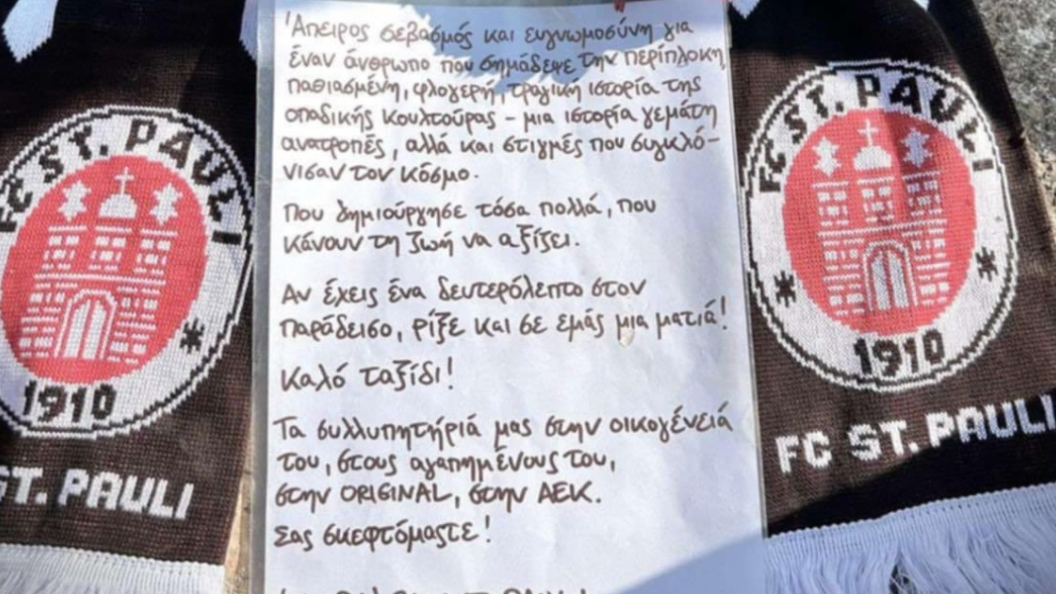 Άπειρος σεβασμός και ευγνωμοσύνη για
έναν άνθρωπο που σημάδεψε την περίπλοκη
παθιασμένη, φλογερή, τραγική ιστορία της
οπαδικής κουλτούρας – μια ιστορία γεμάτη
ανατροπές, αλλά και στιγμές που συγκλό-
νισαν τον κόσμο.
Που δημιούργησε τόσα πολλά, που
κάνουν τη ζωή να αξίζει.
Αν έχεις ένα δευτερόλεπτο στον
παράδεισο, ρίξε και σε εμάς μια ματιά!
Καλό ταξίδι!
Τα συλλυπητήριά μας στην οικογένειά
του, στους αγαπημένους του,
στην ORIGINAL, στην ΑΕΚ.
Σας σκεφτόμαστε!
FC ST. PAULI
1910
ST. PAULI
FC ST. PAULI
1910
FC ST. PAULI